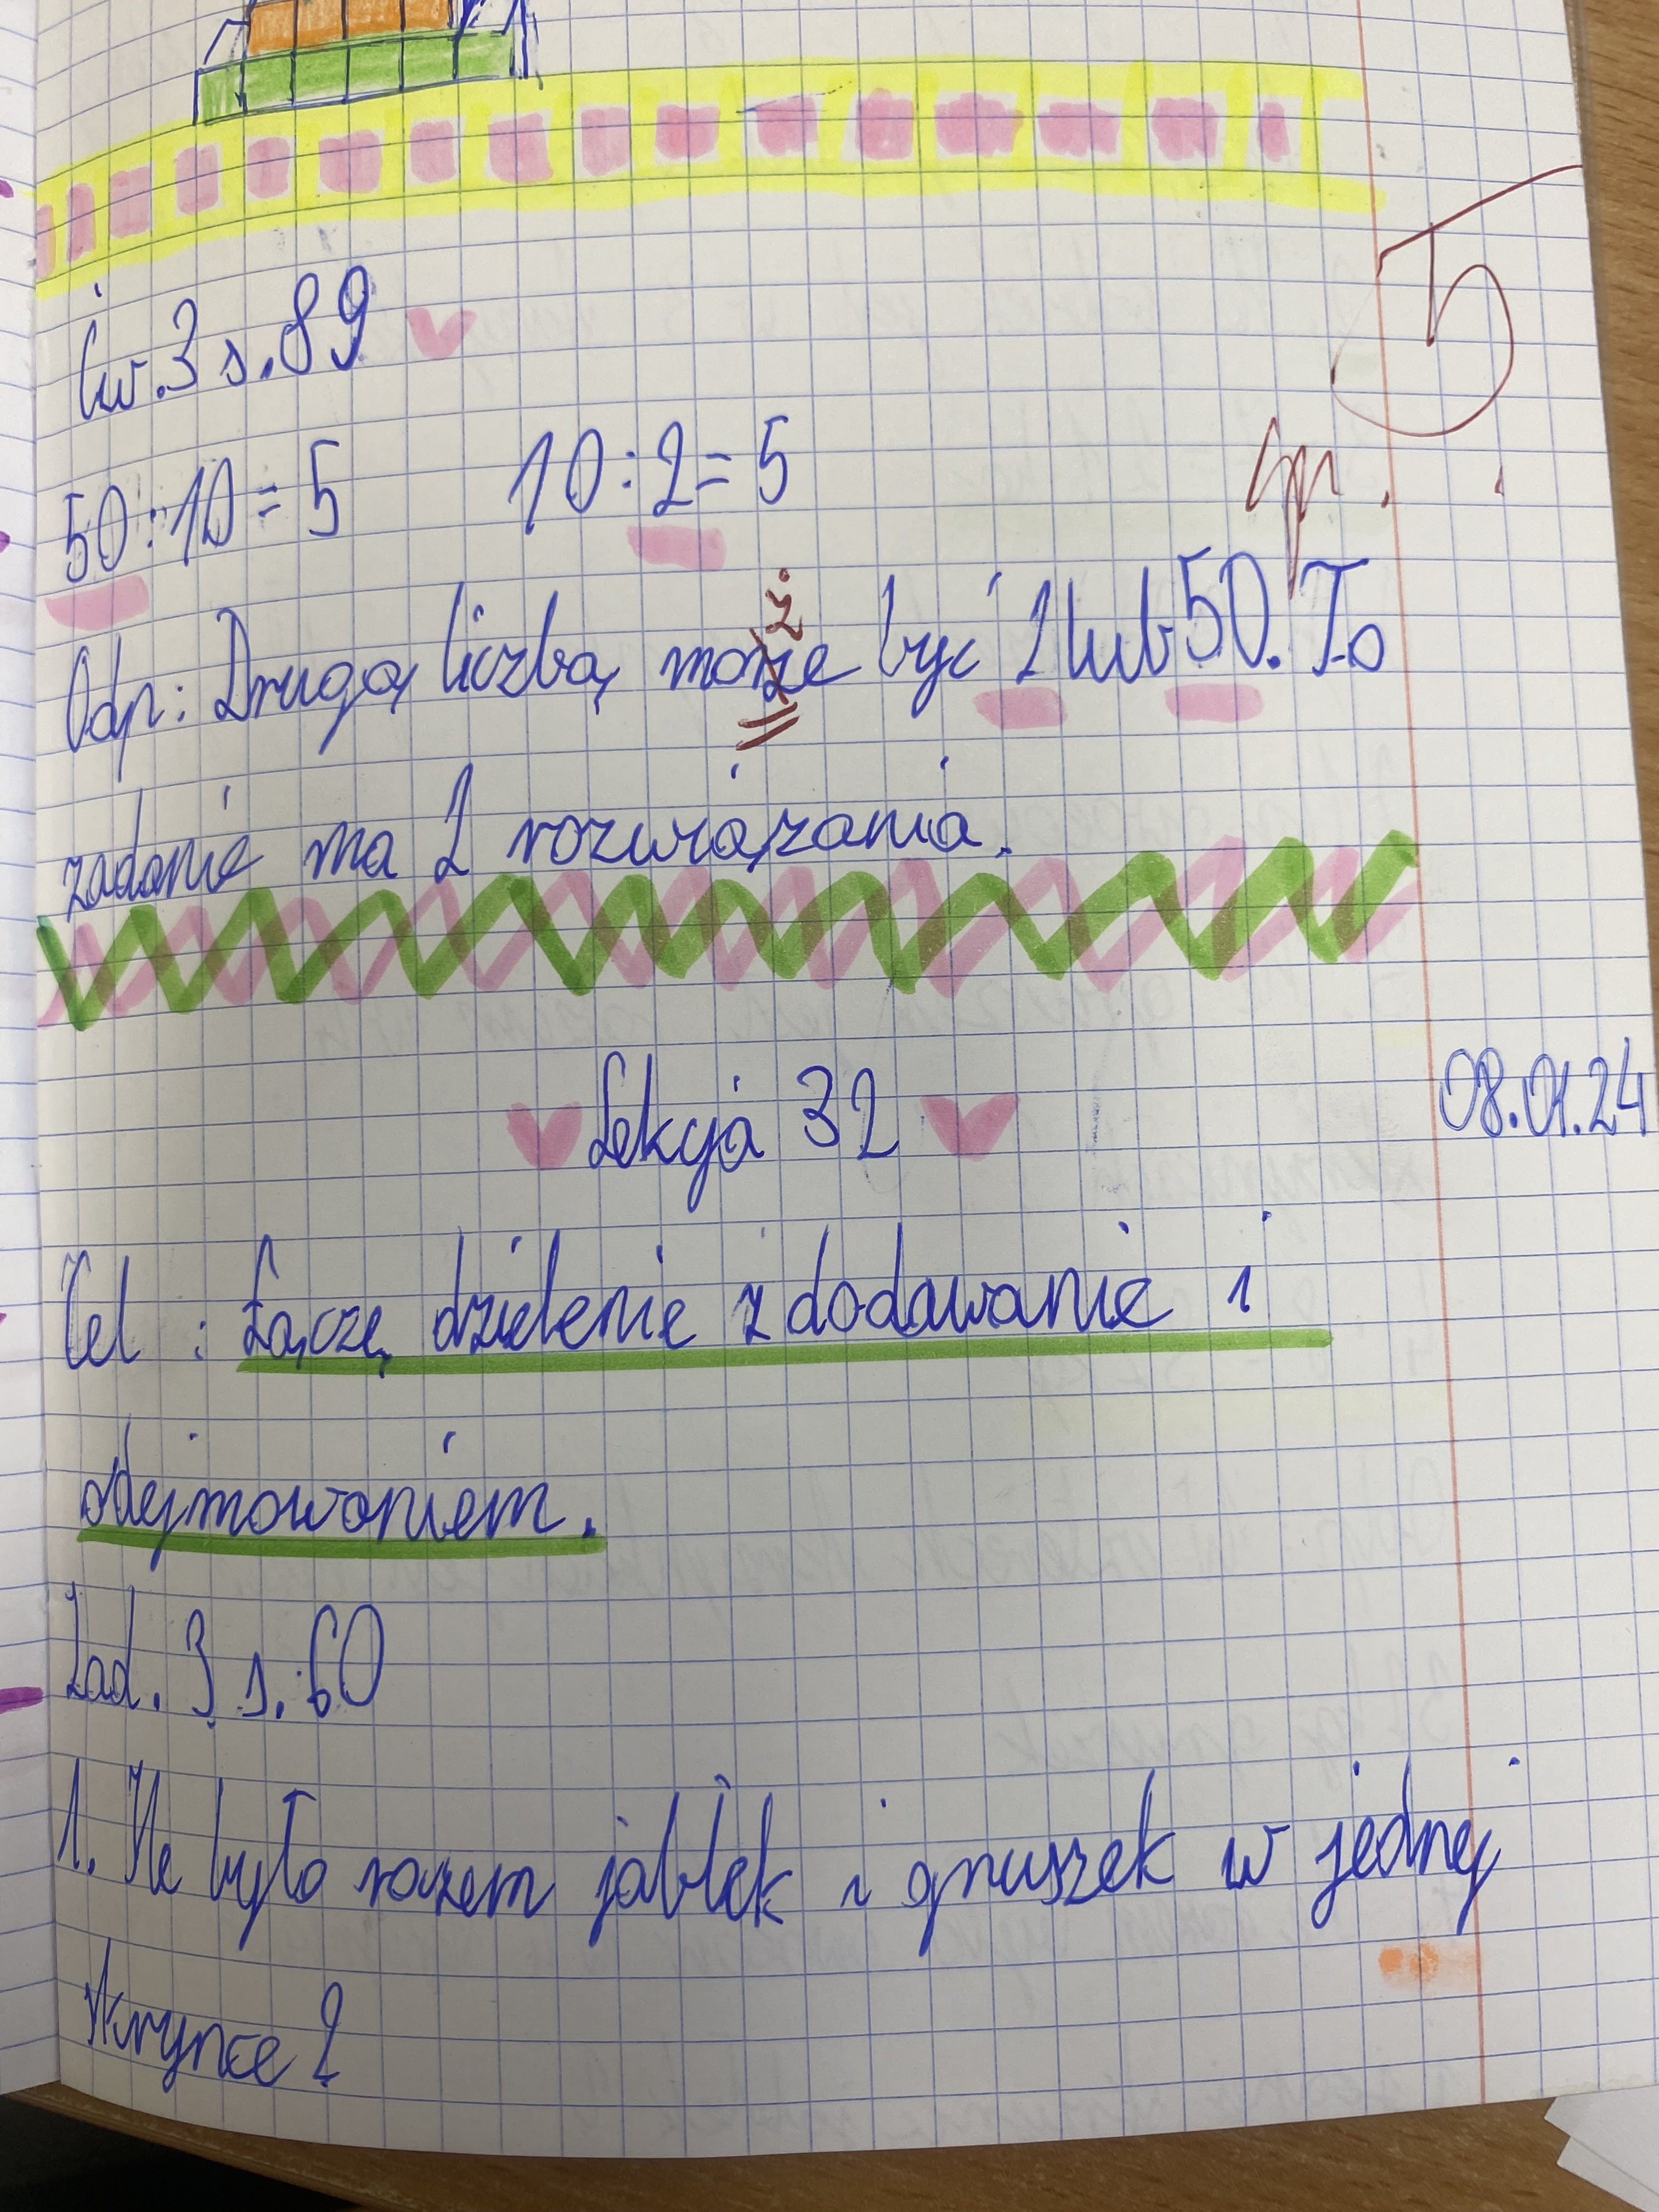 Ćw. 3 s. 89
50 : 10 = 5 10 : 2 = 5
5
Odp: Drugą liczbą może być 2 lub 50. To
ż
zadanie ma 2 rozwiązania.
Lekcja 32
08.01.24
Cel : Łączę dzielenie z dodawanie i
odejmowaniem.
Zad. 3 s. 60
1. Ile było razem jabłek i gruszek w jednej
skrzynce ?